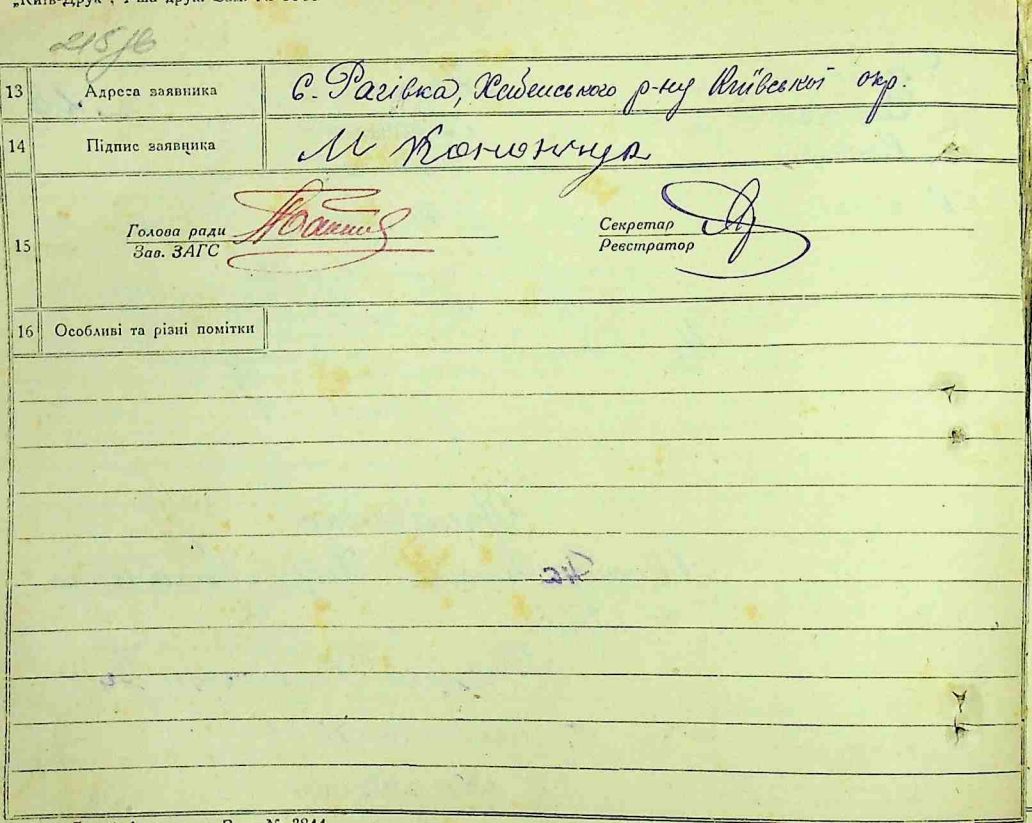 "Київ-Друк",
215/6
13 Адреса заявника с. Рагівка, Хабенського р-ну Київської окр.
14 Підпис заявника М Конончук
15 Голова ради Секретар
Зав. ЗАГС Реєстратор
16 Особливі та різні помітки
№ 3844